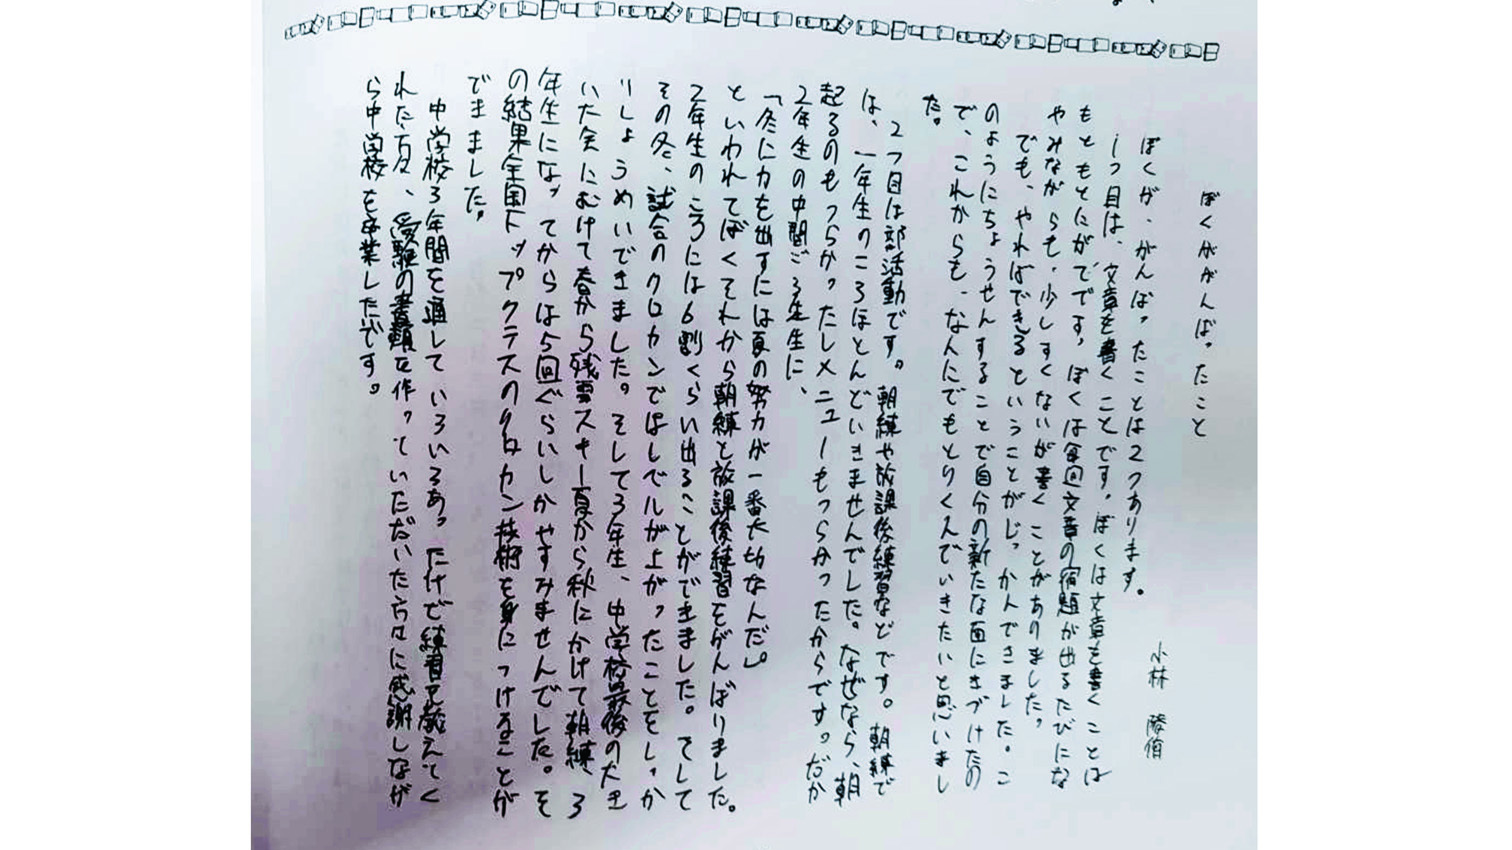 ぼくががんばったこと
小林
ぼくが、がんばったことは2つあります。
1つ目は、文章を書くことです。ぼくは文章を書くことは
もともとにがてです。ぼくは毎回文章の宿題が出るたびにな
やみながらも、少しすくないが書くことがありました。
でも、やればできるということがじっかんできました。こ
のようにちょうせんすることで自分の新たな面にきづけたの
で、これからも、なんにでもとりくんでいきたいと思いまし
た。
2つ目は部活動です。朝練や放課後練習などです。朝練で
は、一年生のころほとんどいきませんでした。なぜなら、朝
起るのもつらかったしメニューもつらかったからです。だが
2年生の中間ごろ先生に、
「冬に力を出すには夏の努力が一番大切なんだ」。
といわれてぼくそれから朝練と放課後練習をがんばりました。
2年生のころには6割くらい出ることができました。そして
その冬、試合のクロカンではレベルが上がったことをしっか
りしょうめいできました。そして3年生、中学校最後の大き
いた会にむけて春から残雪スキー夏から秋にかけて朝練、3
年生になってからは5回ぐらいしかやすみませんでした。そ
の結果全国トップクラスのクロカン技術を身につけることが
できました。
中学校3年間を通していろいろあったけど練習を教えてく
れた方々、受験の書類を作っていただいた方々に感謝しなが
ら中学校を卒業したいです。